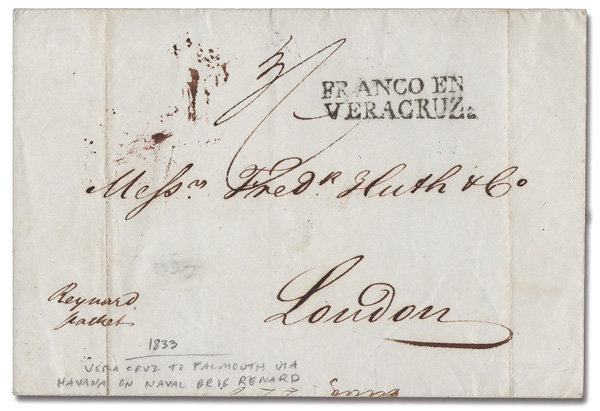 3/
FRANCO EN
VERACRUZ.
Messrs Fredk Huth & Co
London
Reynard
packet
1833
VERA CRUZ TO FALMOUTH VIA
HAVANA ON NAVAL BRIG RENARD